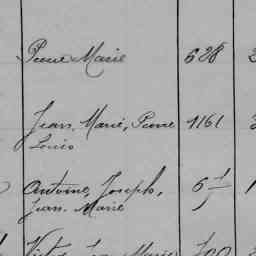 Pierre Marie 628
Jean, Marie, Pierre 1161
Louis
Antoine, Joseph,
Jean-Marie
Marie